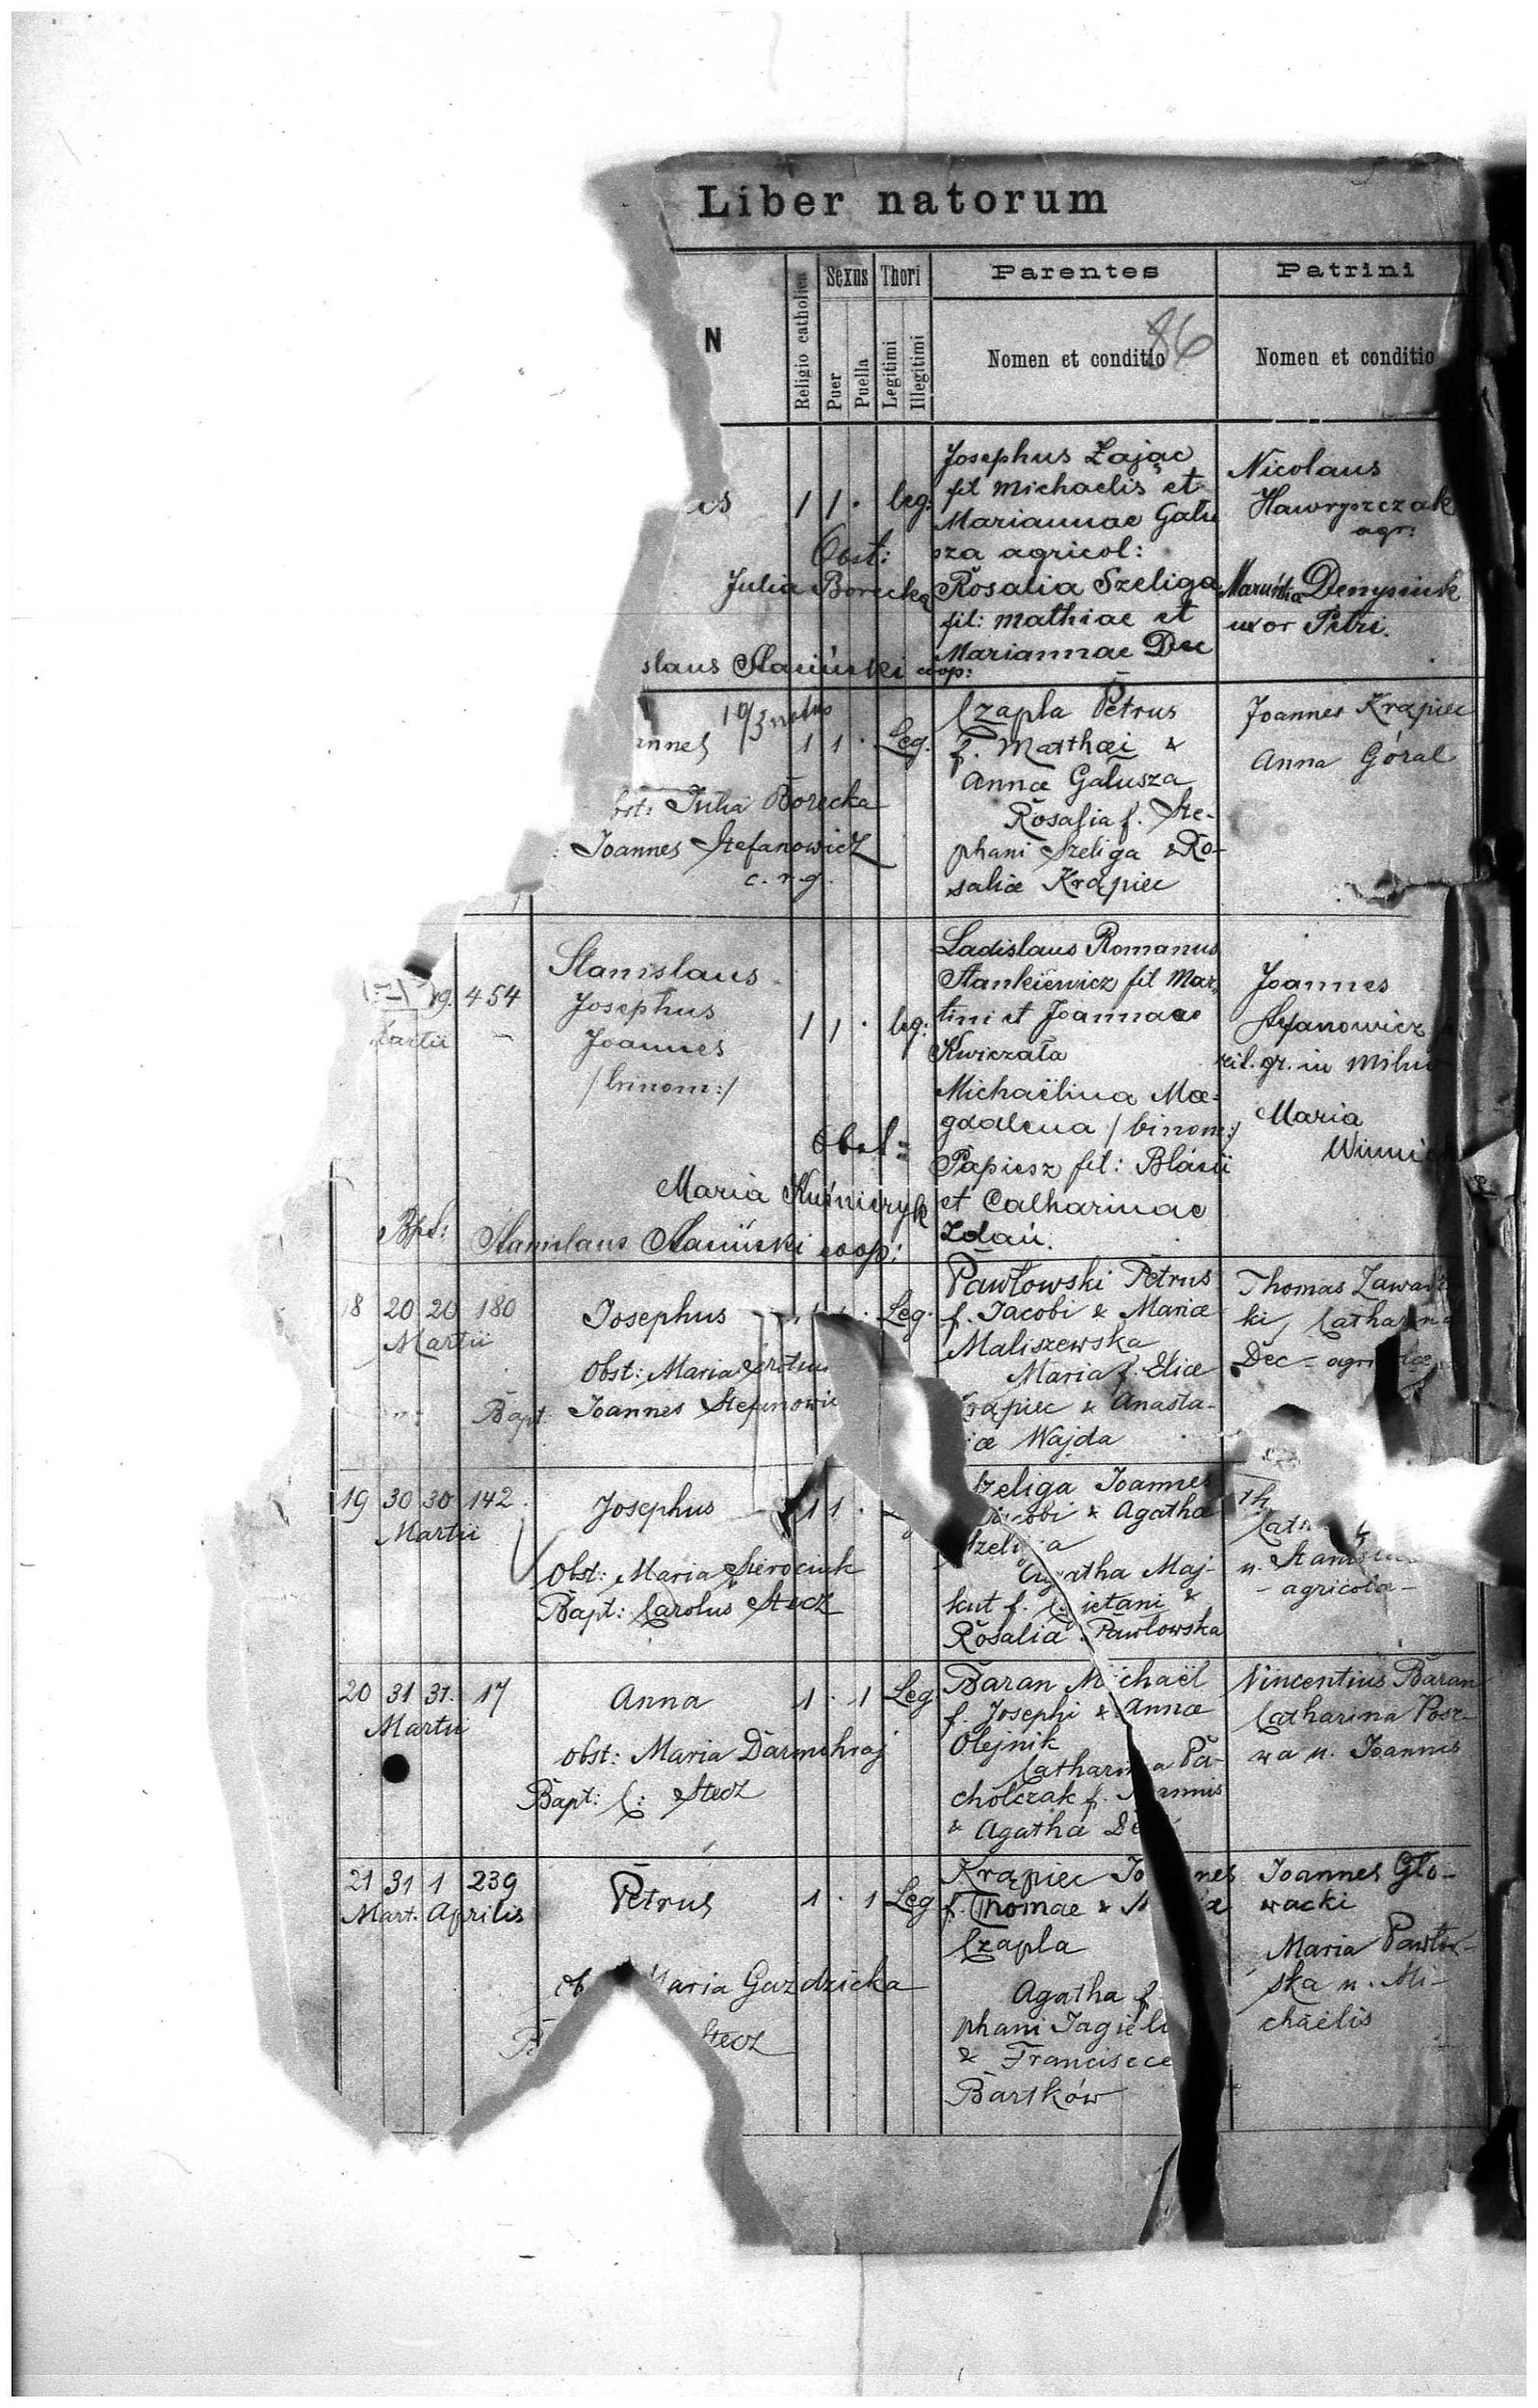 Liber natorum
N
Religio catholica
Sexus
Puer
Puella
Thori
Legitimi
Illegitimi
Parentes
Nomen et conditio
86
Patrini
Nomen et conditio
es 1 1 · leg:
Obst:
Julia Borecka
slaus Stasiński coop:
Josephus Zając
fil Michaelis et
Mariannae Gału
sza agricol:
Rosalia Szeliga
fil: Mathiae et
Mariannae Dec
Nicolaus
Hawryszczak
agr:
Maruńka Denysiuk
uxor Petri.
10/3 natus
annes 1 1 · Leg.
bst: Julia Borecka
: Joannes Stefanowicz
c. r. g.
Czapla Petrus
f. Mathæi &
Annæ Gałusza
Rosalia f. Ste-
phani Szeliga & Ro-
saliæ Krąpiec
Joannes Krąpiec
Anna Góral
19. 454
Martii
Stanislaus
Josephus
Joannes
/binom:/
1 1 · leg:
Obst:
Maria Kuśnieryk
Bpt: Stanislaus Stasiński coop:
Ladislaus Romanus
Stankiewicz fil Mar-
tini et Joannae
Kwiczała
Michaëlina Ma-
gdalena /binom:/
Papiesz fil: Blásii
et Catharinae
Zdań.
Joannes
Stefanowicz
rit. gr. in Milno
Maria
18 20 20 180
Martii
Josephus
Leg.
Obst: Maria
Bapt: Joannes Stefanowic
Pawłowski Petrus
f. Jacobi & Mariæ
Maliszewska
Maria f. Eliæ
rąpiec & Anasta-
iæ Wajda
Thomas Zawadz
ki, Catharina
Dec - agri
19 30 30 142
Martii
Josephus 1 1 ·
Obst: Maria Sierociuk
Bapt: Carolus Stecz
zeliga Joannes
acobi & Agatha
Szeliga
Agatha Maj-
kut f. C ietani &
Rosalia Pawłowska
Th
Cath
u. Stanislai
- agricolæ -
20 31 31. 17
Martii
Anna 1 · 1 Leg.
Obst: Maria Darmohraj
Bapt: C: Stecz
Baran Michaël
f. Josephi & Annæ
Olejnik
Catharina Pa-
cholczak f. Joannis
& Agatha De
Vincentius Baran
Catharina Posz-
wa u. Joannis
21 31 1 239
Mart. Aprilis
Petrus 1 · 1 Leg
Ob Maria Gazdzicka
B Stecz
Krąpiec Joannes
f. Thomae & M æ
Czapla
Agatha f.
phani Jagieł
& Francisce
Bartków
Joannes Gło-
wacki
Maria Pawłow-
ska u. Mi-
chaëlis